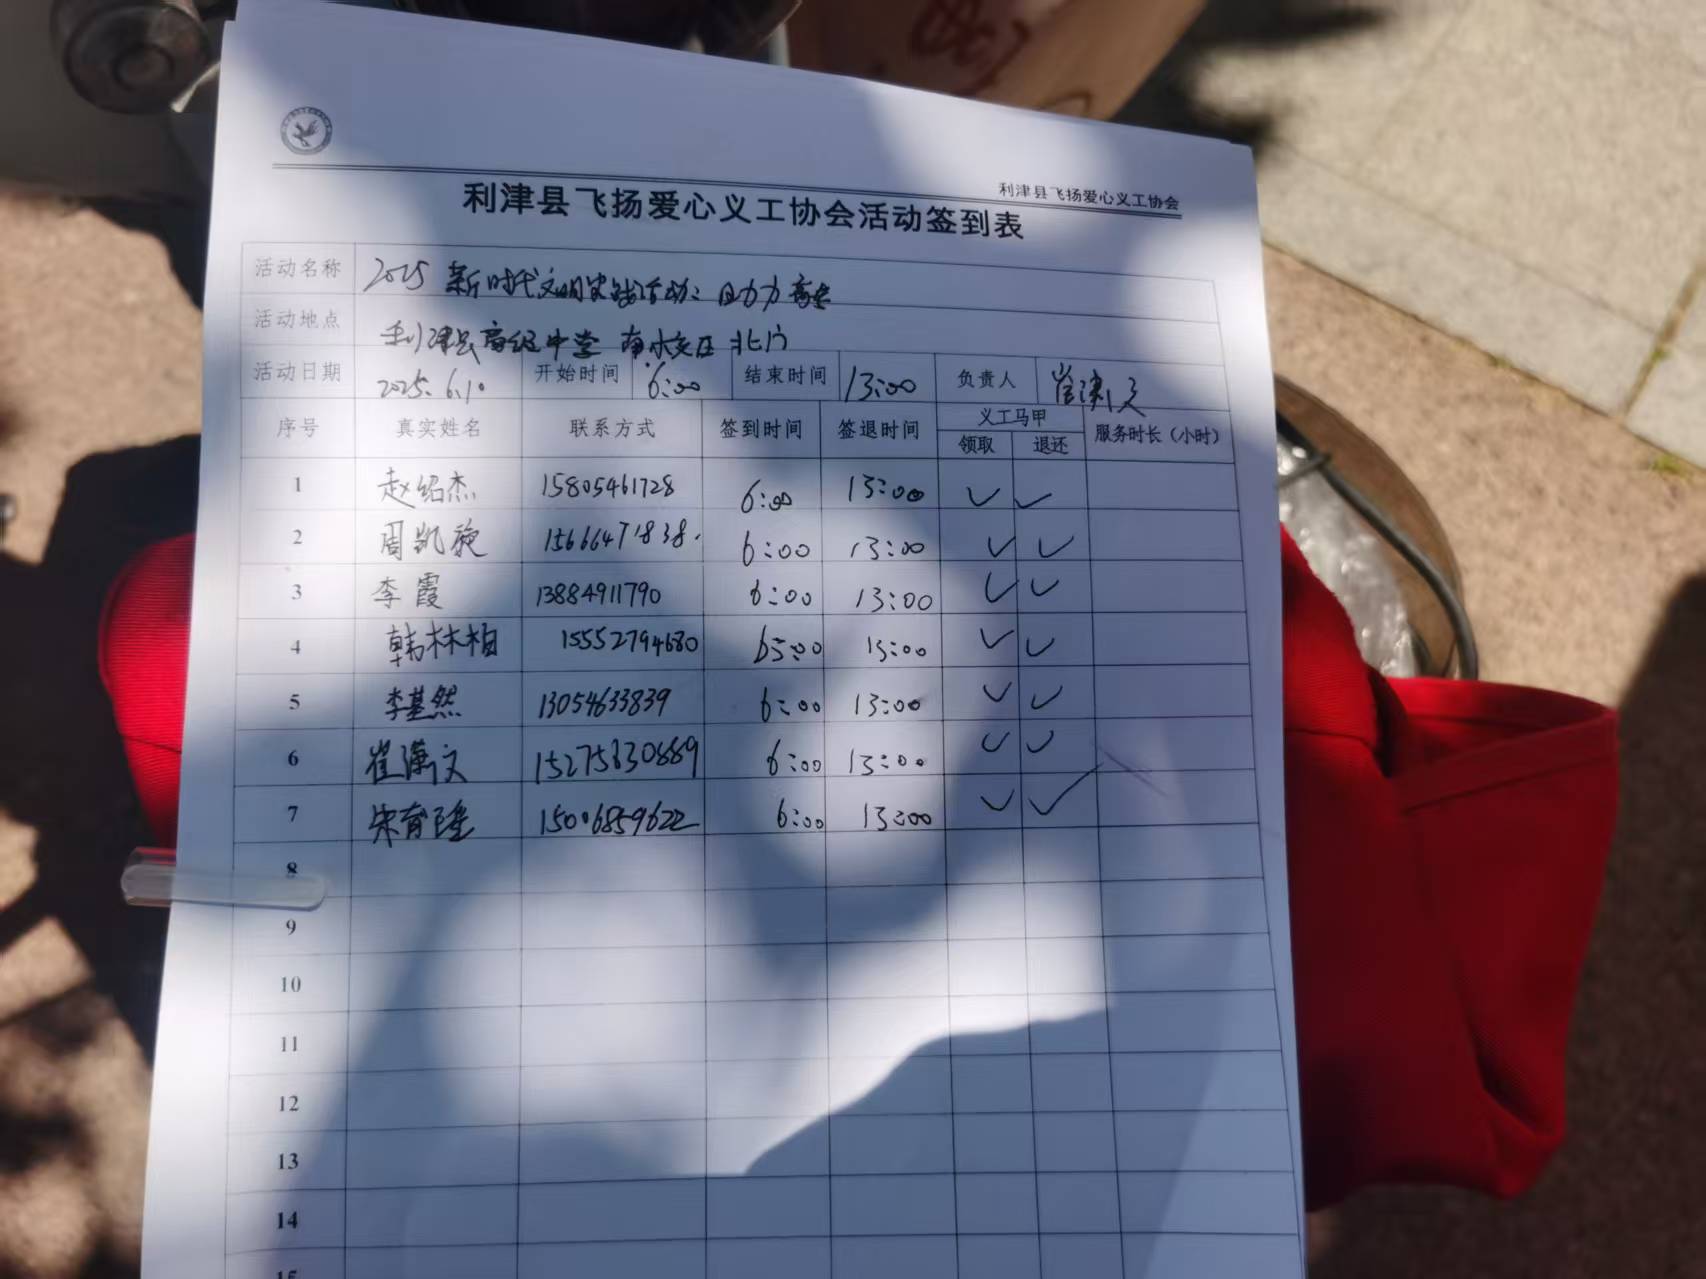 利津县飞扬爱心义工协会
利津县飞扬爱心义工协会活动签到表
活动名称 2025 新时代文明实践活动：助力高考
活动地点 利津县高级中学 北门
活动日期 2025.6.10 开始时间 6:00 结束时间 13:00 负责人 崔潇文
序号 真实姓名 联系方式 签到时间 签退时间 义工马甲 领取 退还 服务时长（小时）
1 赵绍杰 15805461728 6:00 13:00 ✓ ✓
2 周凯旋 15666471838. 6:00 13:00 ✓ ✓
3 李霞 13884911790 6:00 13:00 ✓ ✓
4 韩林柏 15552794680 13:00 ✓ ✓
5 李基然 13054633839 6:00 13:00 ✓ ✓
6 崔潇文 6:00 13:00 ✓ ✓
7 宋育隆 15006859622 6:00 13:00 ✓ ✓
8
9
10
11
12
13
14
15